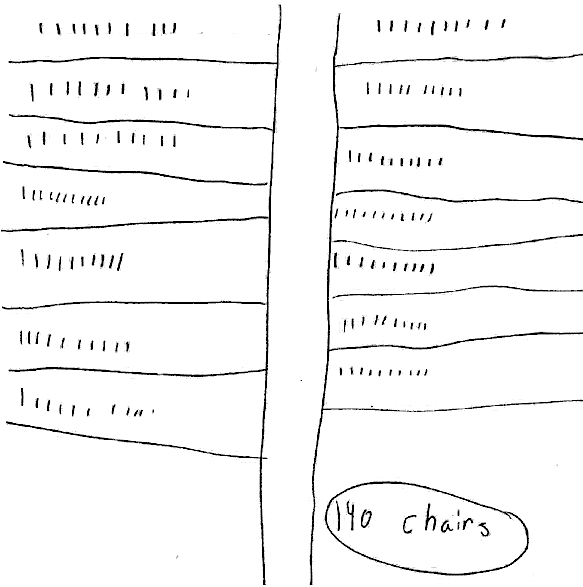 140 chairs